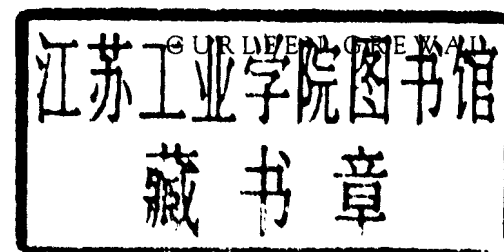 GURLEEN GREWAL
江苏工业学院图书馆
藏书章